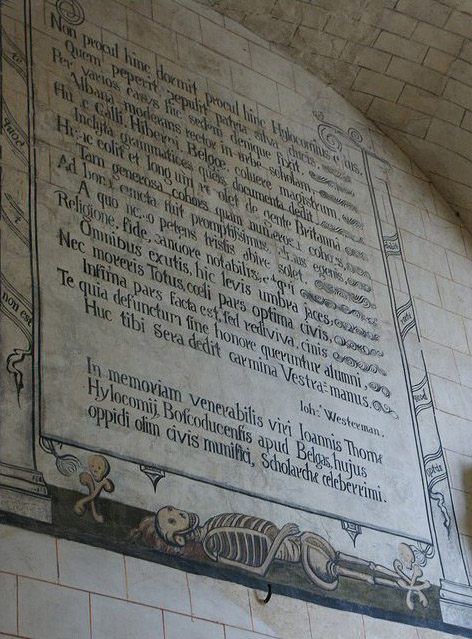 Non procul hinc dormit procul hinc Hylocomius ejus,
Quem peperit, sepulit patria silva ducis.
Per varios casus hic sedem denique fixit,
Albana moderans rector in urbe scholam.
Hunc Galli, Hiberni, Belgæ, coluere magistrum,
Inclyta grammatices queis documenta dedit.
Hunc colit et longum colet de gente Britanna
Tam generosa cohors quam numerosa cohors,
Ad bona cuncta fuit promptissimus, hujus egenis,
A quo nemo petens tristis abire solet
Religione, fide, candore notabilis, et qui
Omnibus exutis, hic levis umbra jaces,
Nec moreris Totus, cœli pars optima civis,
Infima pars facta est, sed rediviva, cinis
Te quia defuncturi sine honore queruntur alumni,
Huc tibi sera dedit carmina Vestra manus.
Joh: Westerman.
In memoriam venerabilis viri Joannis Thomæ
Hylocomij, Boscoducensis apud Belgas, hujus
oppidi olim civis munifici, Scholarchæ celeberrimi.
quod
non est